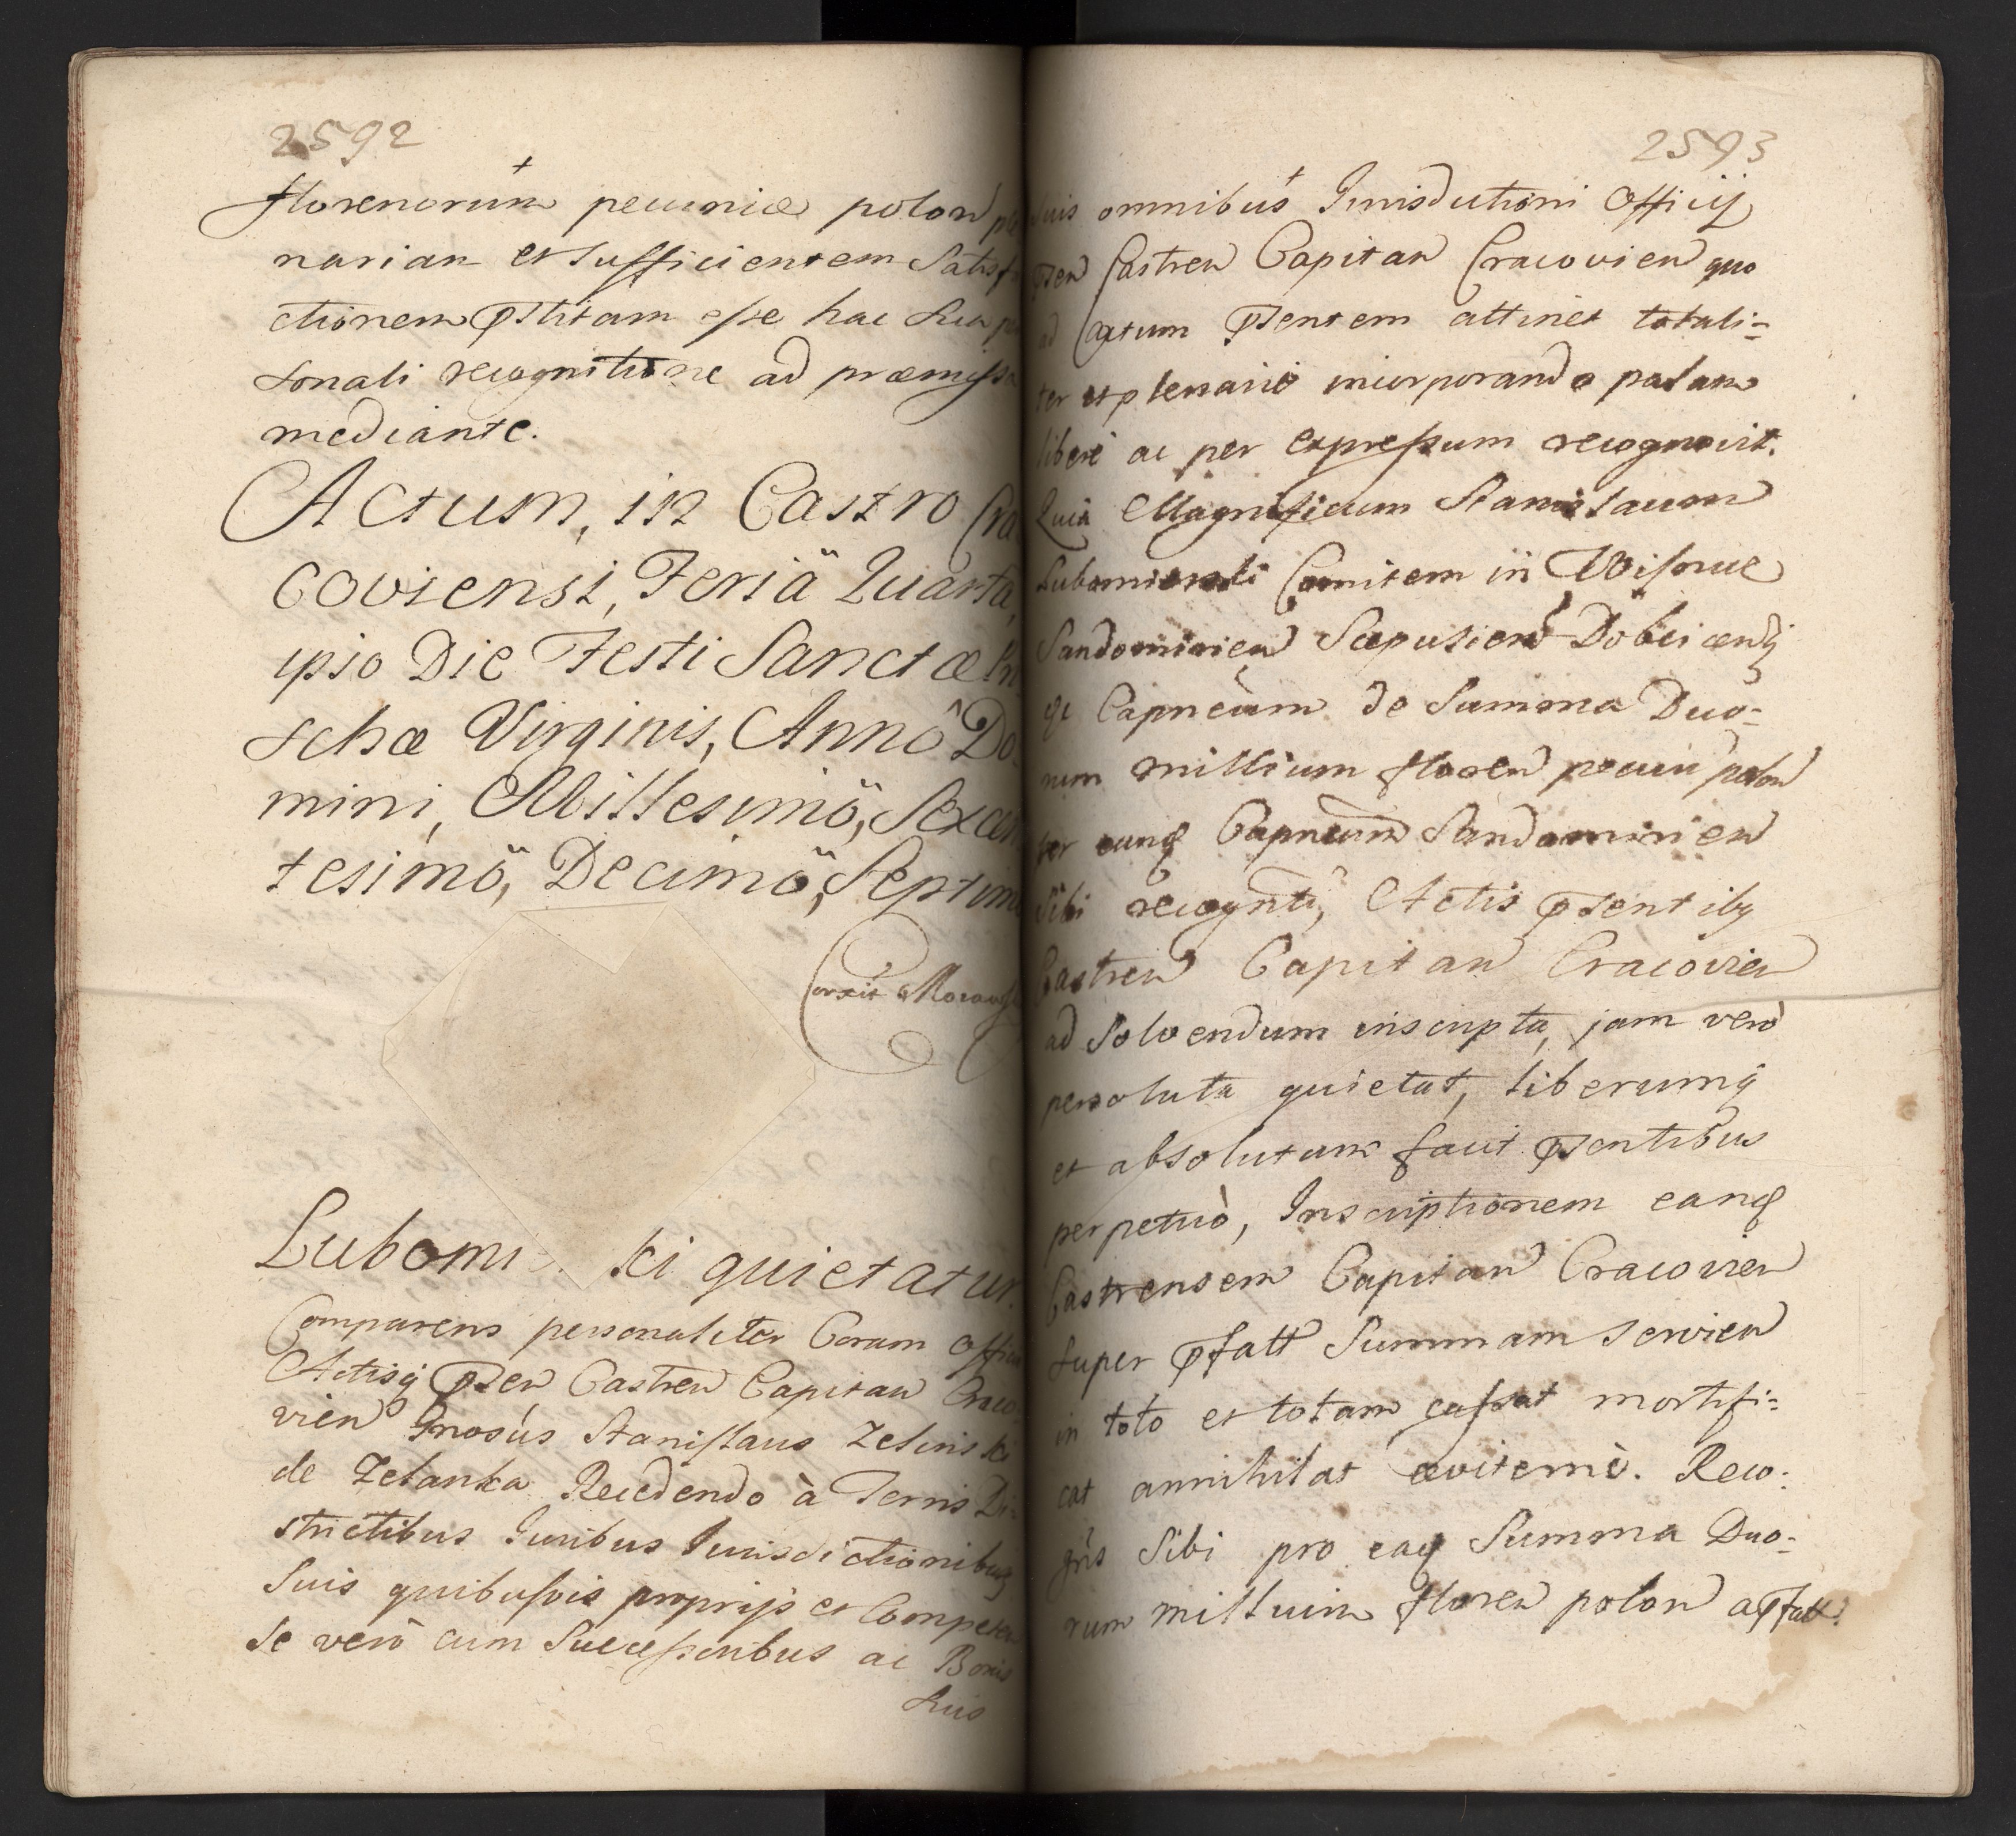 2592
florenorum pecuniæ polon ple
narian et sufficientem Satisf
ctionem pstitam esse hac sua per
sonali recognitione ad præmissa
mediante.
Actum, in Castro Cra
coviensi, Feriä Quarta,
ipso Die Festi Sanctæ Pri
schæ Virginis, Annô Do
mini, Millesimö, Sexcen
tesimö, Decimö, Septimo
Corxit Moraws
Lubomi ki quietatur.
Comparens personaliter Coram Offici
Actisq psen Castren Capitan Craco
vien Gnosus Stanislaus Zelinski
de Zelanka Recedendo à Terris Di
strictibus Juribus Jurisdictionibusq
Suis quibusvis proprijs et Competen
Se verò cum Successoribus ac Bonis
Suis
2593
suis omnibus Jurisdictioni Officij
psen Castren Capitan Cracovien quo
ad actum psentem attinet totali=
ter et plenariè incorporando palam
liberè ac per expressum recognovit.
Quia Magnificum Stanislaum
Lubomirski Comitem in Wisnice
Sandomirien Scepusien Dobcicenq
Capneum de Summa Duo=
rum millium floren pecun polon
per eunq Capneum Sandomirien
Sibi recognti, Actis psentibq
Castren Capitan Cracovien
ad Solvendum inscripta, jam verò
persoluta quietat, liberumq
et absolutum facit psentibus
perpetuò, Inscriptionem eanq
Castrensem Capitan Cracovien
super pfatt Summam Servien
in toto et totam cassat mortifi=
cat annihilat æviternè. Reco=
gns Sibi pro eaq Summa Duo=
rum millium floren polon a pfatt